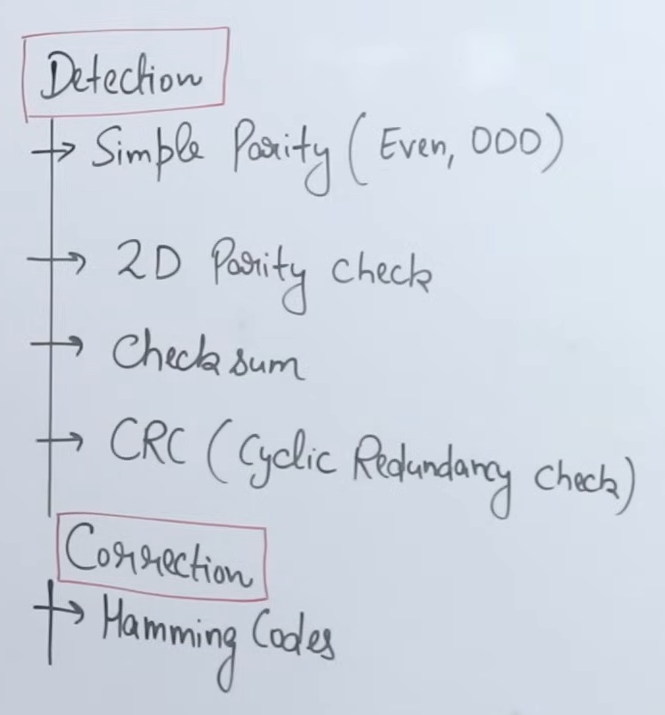 Detection
→ Simple Parity (Even, ODD)
→ 2D Parity check
→ Checksum
→ CRC (Cyclic Redundancy check)
Correction
→ Hamming Codes